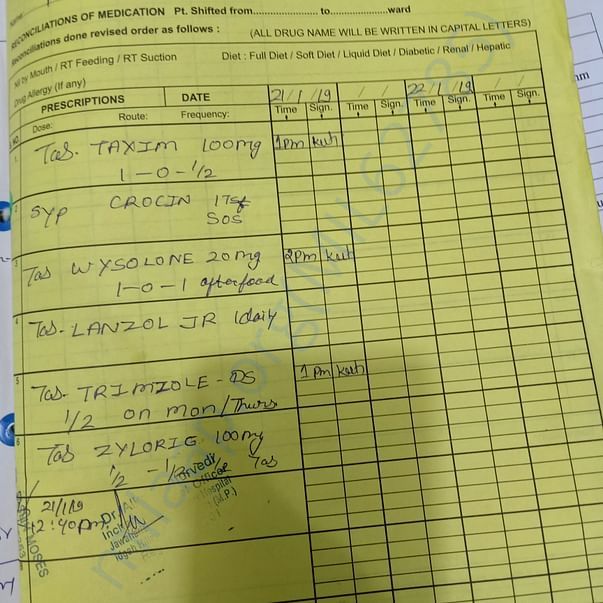 RECONCILIATIONS OF MEDICATION Pt. Shifted from.................... to....................ward
Reconciliations done revised order as follows : (ALL DRUG NAME WILL BE WRITTEN IN CAPITAL LETTERS)
Nil by Mouth / RT Feeding / RT Suction Diet : Full Diet / Soft Diet / Liquid Diet / Diabetic / Renal / Hepatic
Drug Allergy (If any)
PRESCRIPTIONS DATE 21/1/19 / / 22/1/19 / /
Dose: Route: Frequency: Time Sign. Time Sign. Time Sign. Time Sign.
1. Tab. TAXIM 100mg 1pm
1-0-1/2
2 SYP CROCIN
SOS
3 Tab WYSOLONE 20mg 2pm
1-0-1 after food
4 Tab. LANZOL JR 1daily
5 Tab. TRIMZOLE-DS 1pm
1/2 on mon/Thurs
6 Tab ZYLORIG 100mg
1/2 - 1/2 Tab
21/1/19
12:40pm
MOSES